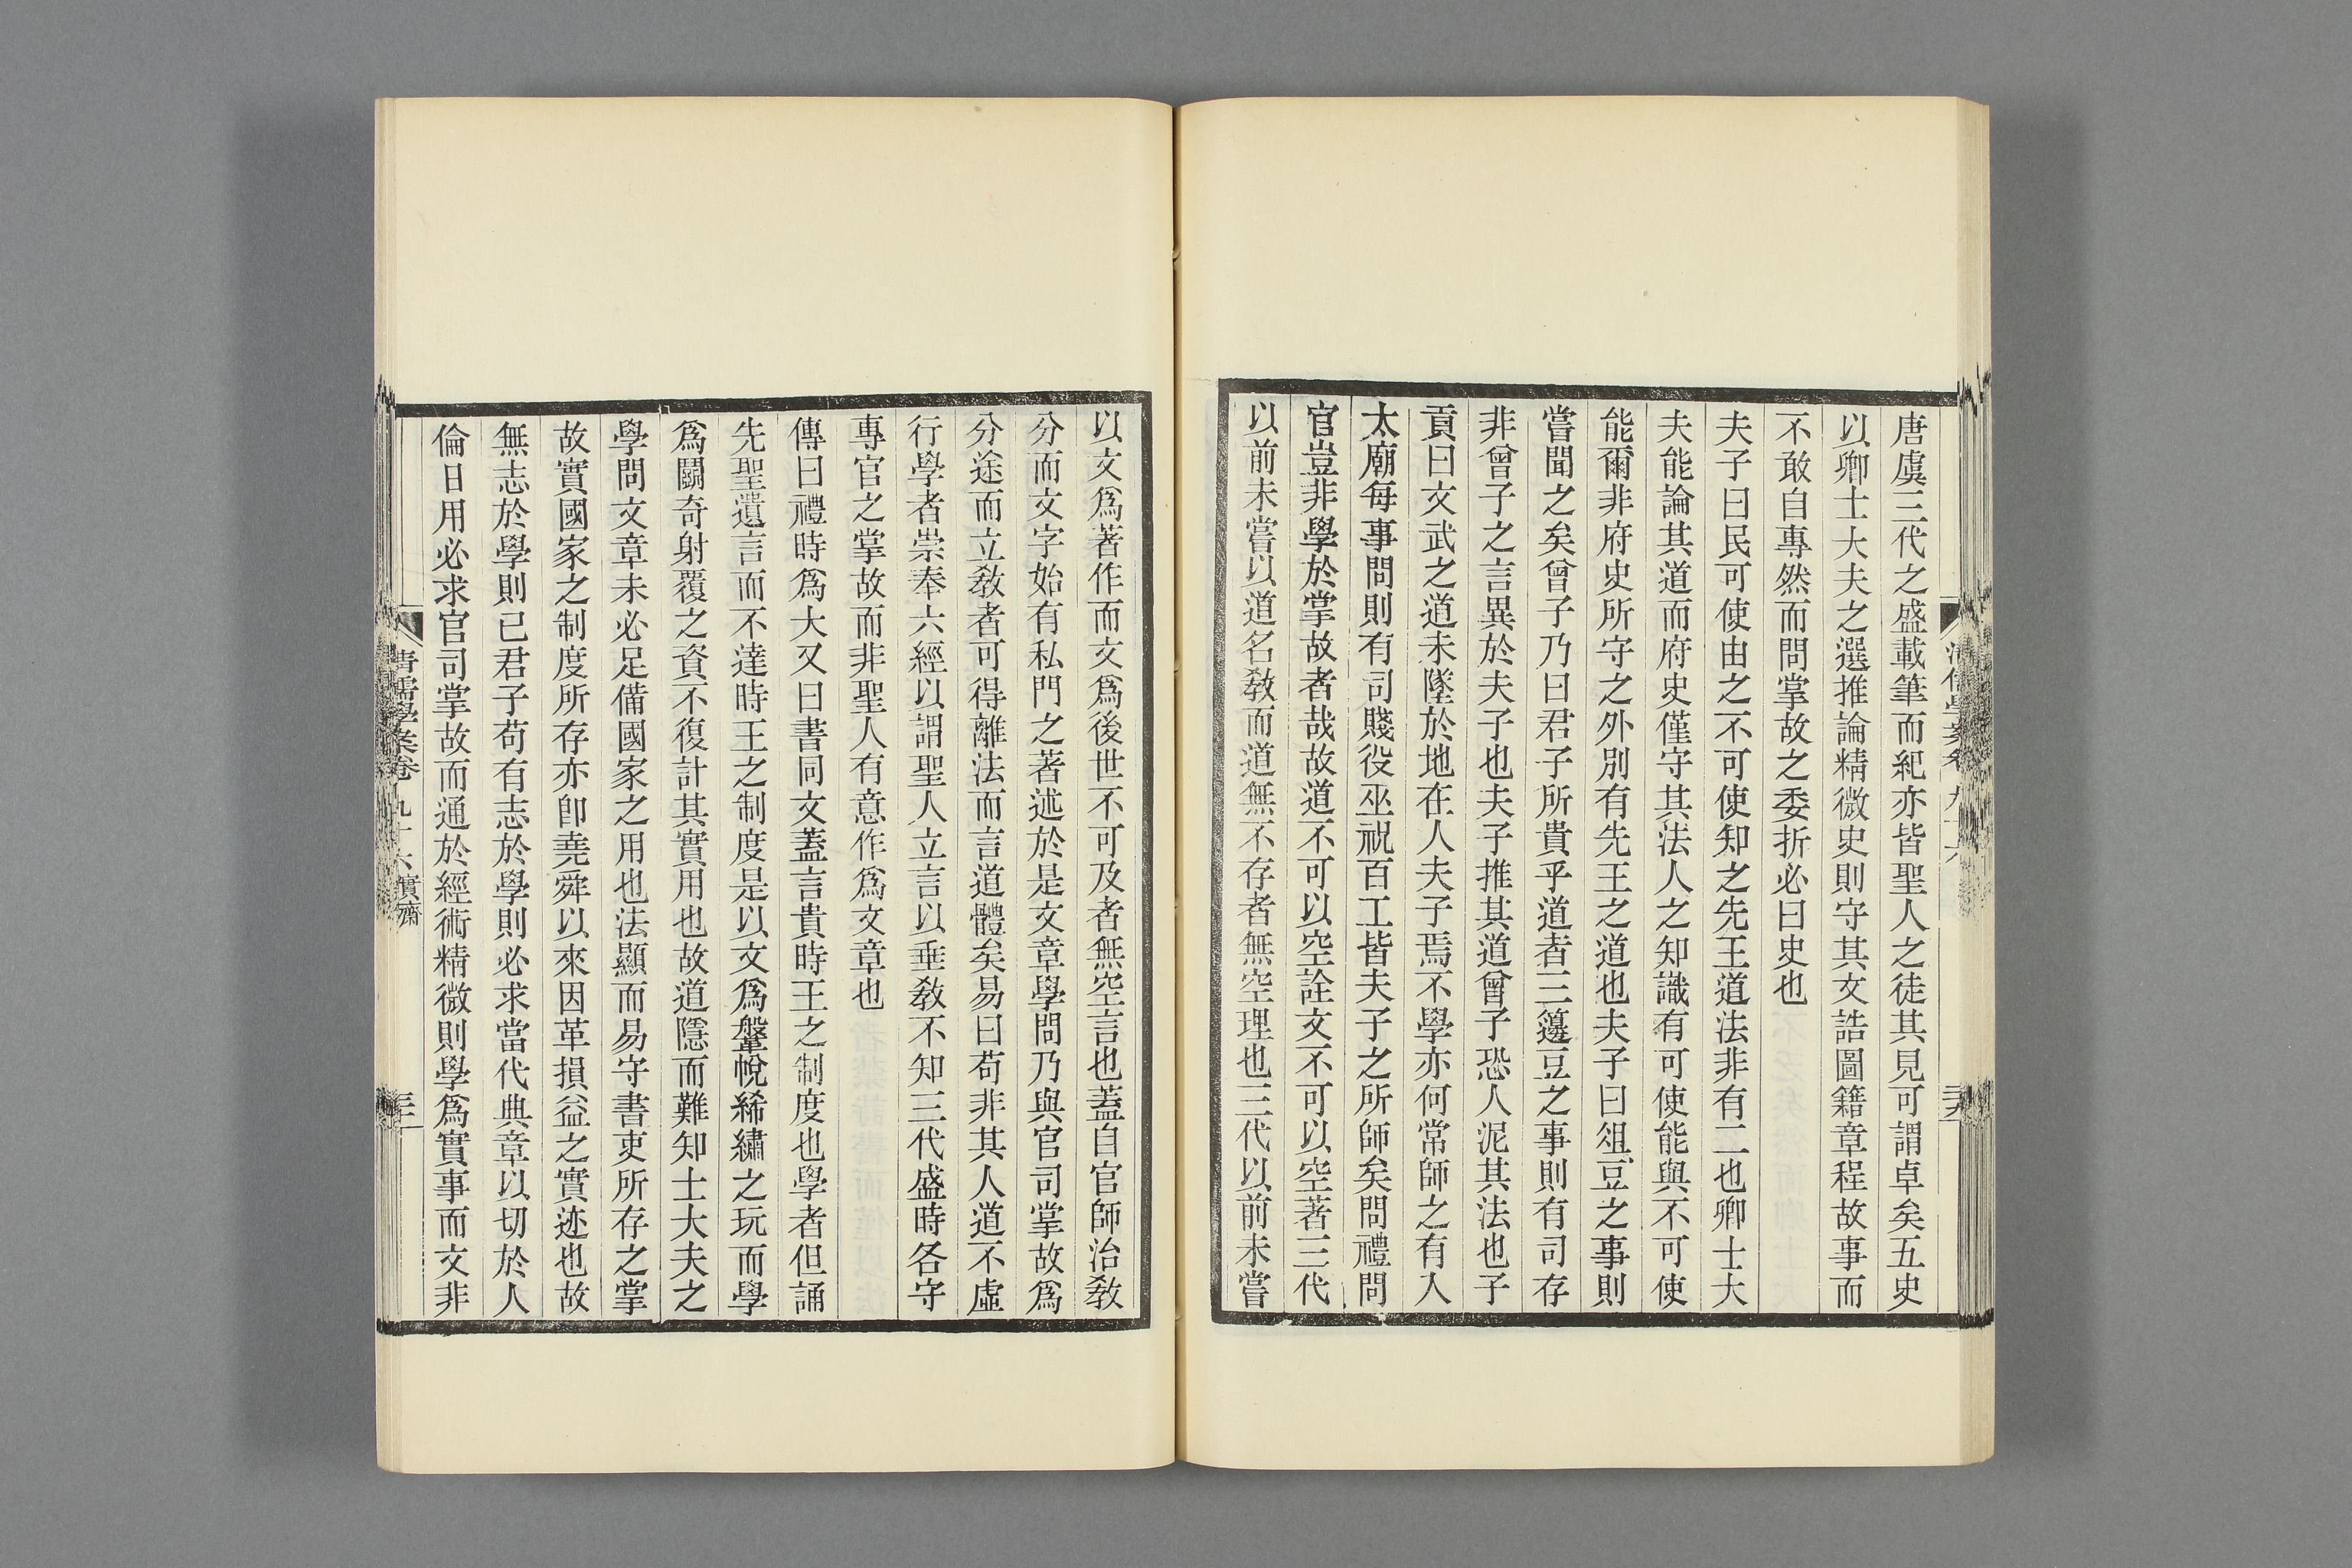 唐虞三代之盛載筆而紀亦皆聖人之徒其見可謂卓矣五史
以卿士大夫之選推論精微史則守其文誥圖籍章程故事而
不敢自專然而問掌故之委折必曰史也
夫子曰民可使由之不可使知之先王道法非有二也卿士大
夫能論其道而府史僅守其法人之知識有可使能與不可使
能爾非府史所守之外別有先王之道也夫子曰俎豆之事則
嘗聞之矣曾子乃曰君子所貴乎道者三籩豆之事則有司存
非曾子之言異於夫子也夫子推其道曾子恐人泥其法也子
貢曰文武之道未墜於地在人夫子焉不學亦何常師之有入
太廟每事問則有司賤役巫祝百工皆夫子之所師矣問禮問
官豈非學於掌故者哉故道不可以空詮文不可以空著三代
以前未嘗以道名敎而道無不存者無空理也三代以前未嘗
以文爲著作而文爲後世不可及者無空言也蓋自官師治敎
分而文字始有私門之著述於是文章學問乃與官司掌故爲
分途而立敎者可得離法而言道體矣易曰苟非其人道不虛
行學者崇奉六經以謂聖人立言以垂敎不知三代盛時各守
專官之掌故而非聖人有意作爲文章也
傳曰禮時爲大又曰書同文蓋言貴時王之制度也學者但誦
先聖遺言而不達時王之制度是以文爲鞶帨絺繡之玩而學
爲鬭奇射覆之資不復計其實用也故道隱而難知士大夫之
學問文章未必足備國家之用也法顯而易守書吏所存之掌
故實國家之制度所存亦卽堯舜以來因革損益之實迹也故
無志於學則已君子苟有志於學則必求當代典章以切於人
倫日用必求官司掌故而通於經術精微則學爲實事而文非
清儒學案卷九十六實齋